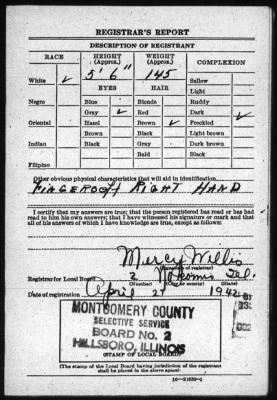 REGISTRAR'S REPORT
DESCRIPTION OF REGISTRANT
RACE HEIGHT (Approx.) WEIGHT (Approx.) COMPLEXION
White ✓ 5' 6" 145 Sallow
EYES HAIR Light
Negro Blue Blonde Ruddy
Gray ✓ Red Dark ✓
Oriental Hazel Brown ✓ Freckled
Brown Black Light brown
Indian Black Gray Dark brown
Bald Black
Filipino
Other obvious physical characteristics that will aid in identification
Finger off Right Hand
I certify that my answers are true; that the person registered has read or has had
read to him his own answers; that I have witnessed his signature or mark and that
all of his answers of which I have knowledge are true, except as follows:
Mercy Willis
(Signature of registrar)
Registrar for Local Board 2 Nokomis Ill.
(Number) (City or county)
Date of registration April 27 1942
MONTGOMERY COUNTY
SELECTIVE SERVICE
BOARD No. 2
HILLSBORO, ILLINOIS
(STAMP OF LOCAL BOARD)
(The stamp of the Local Board having jurisdiction of the registrant
shall be placed in the above space)
16-21630-1